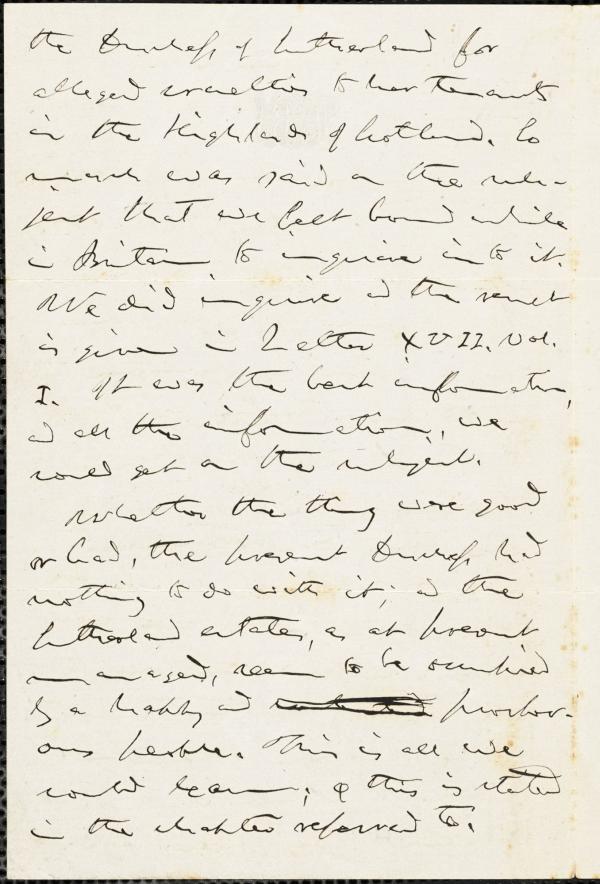 the Duchess of Sutherland for
alleged cruelties to her tenants
in the Highlands of Scotland. So
much was said on the sub-
ject that we felt bound while
in Britain to inquire into it.
We did inquire and the result
is given in Letter XVII. Vol.
I. It was the best information,
and all the information, we
could get on the subject.
Whether the thing were good
or bad, the present Duchess had
nothing to do with it; and the
Sutherland estates, as at present
managed, seem to be occupied
by a happy and prosper-
ous people. This is all we
could learn; & this is stated
in the chapter referred to.